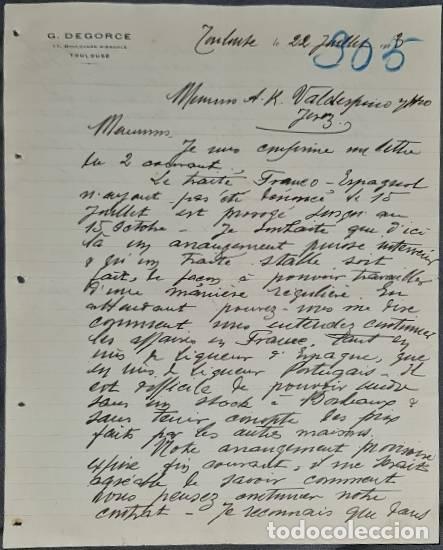 G. DEGORCE
17, BOULEVARD D'ARCOLE
TOULOUSE
Toulouse le 22 Juillet
305
Messieurs A. R. Valdespino y Hno
Jerez
Messieurs
Je vous confirme ma lettre
du 2 courant.
Le traité Franco-Espagnol
n'ayant pas été dénoncé le 15
Juillet est prorogé jusqu'au
15 Octobre - Je souhaite que d'ici
là un arrangement puisse intervenir
& qu'un traité stable soit
fait, de façon à pouvoir travailler
d'une manière régulière. En
attendant pouvez-vous me dire
comment vous entendez continuer
les affaires en France, tant en
vins de liqueur d'Espagne, que
en vins de liqueur Portugais - Il
est difficile de pouvoir
sans un stock à Bordeaux &
sans tenir compte des prix
faits par les autres maisons.
Notre arrangement provisoire
expire fin courant, il me serait
agréable de savoir comment
vous pensez continuer notre
contrat - Je reconnais que dans
todocoleccion.net